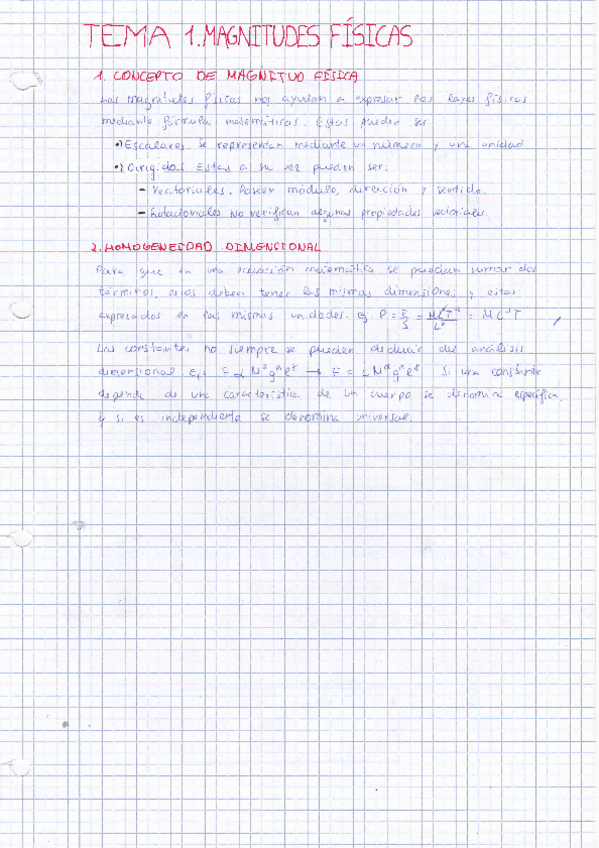 TEMA 1. MAGNITUDES FÍSICAS
1. CONCEPTO DE MAGNITUD FÍSICA
Las magnitudes físicas nos ayudan a expresar las leyes físicas
mediante fórmulas matemáticas. Estas pueden ser
•) Escalares. Se representan mediante un número y una unidad.
•) Dirigidas. Estas a su vez pueden ser:
- Vectoriales. Poseen módulo, dirección y sentido.
- Rotacionales. No verifican algunas propiedades vectoriales.
2. HOMOGENEIDAD DIMENSIONAL
Para que en una ecuación matemática se puedan sumar dos
términos, estos deben tener las mismas dimensiones y estar
expresados en las mismas unidades. P = F/S =
Las constantes no siempre se pueden deducir del análisis
dimensional. Si una constante
depende de una característica de un cuerpo se denomina específica,
y si es independiente se denomina universal.